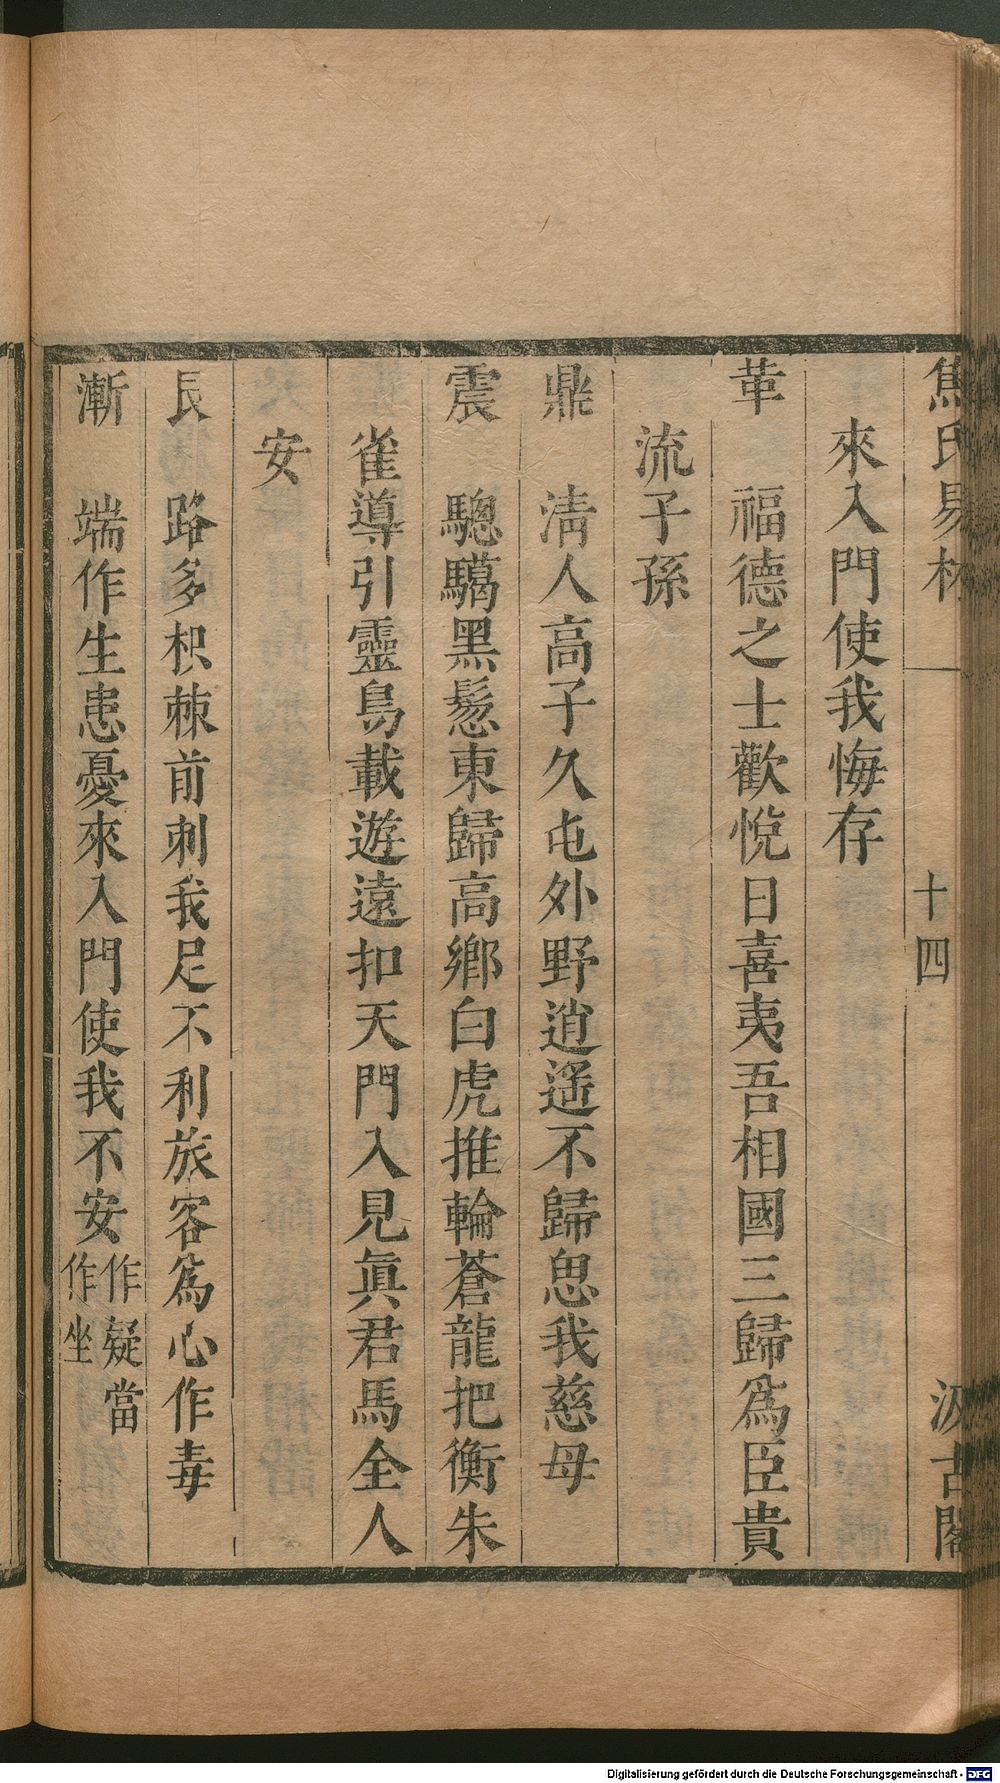 焦氏易林 一 十四 汲古閣
來入門使我悔存
革 福德之士歡悅日喜夷吾相國三歸爲臣貴
流子孫
鼎 淸人高子久屯外野逍遙不歸思我慈母
震 驄騧黑鬃東歸高鄉白虎推輪蒼龍把衡朱
雀導引靈鳥載遊遠扣天門入見眞君馬全人
安
艮 路多枳棘前刺我足不利旅客爲心作毒
漸 端作生患憂來入門使我不安作疑當
作坐
Digitalisierung gefördert durch die Deutsche Forschungsgemeinschaft - DFG